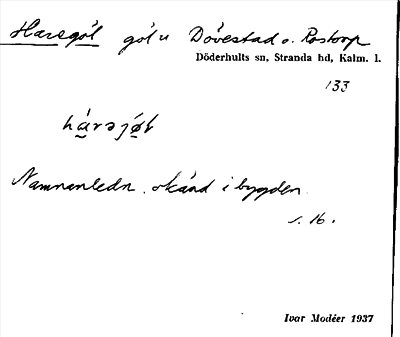 Haregöl göl u Dövestad o. Rostorp
Döderhults sn, Stranda hd, Kalm. l.
133
hárəjø̀l
Namnanledn. okänd i bygden.
s. 16.
Ivar Modéer 1937